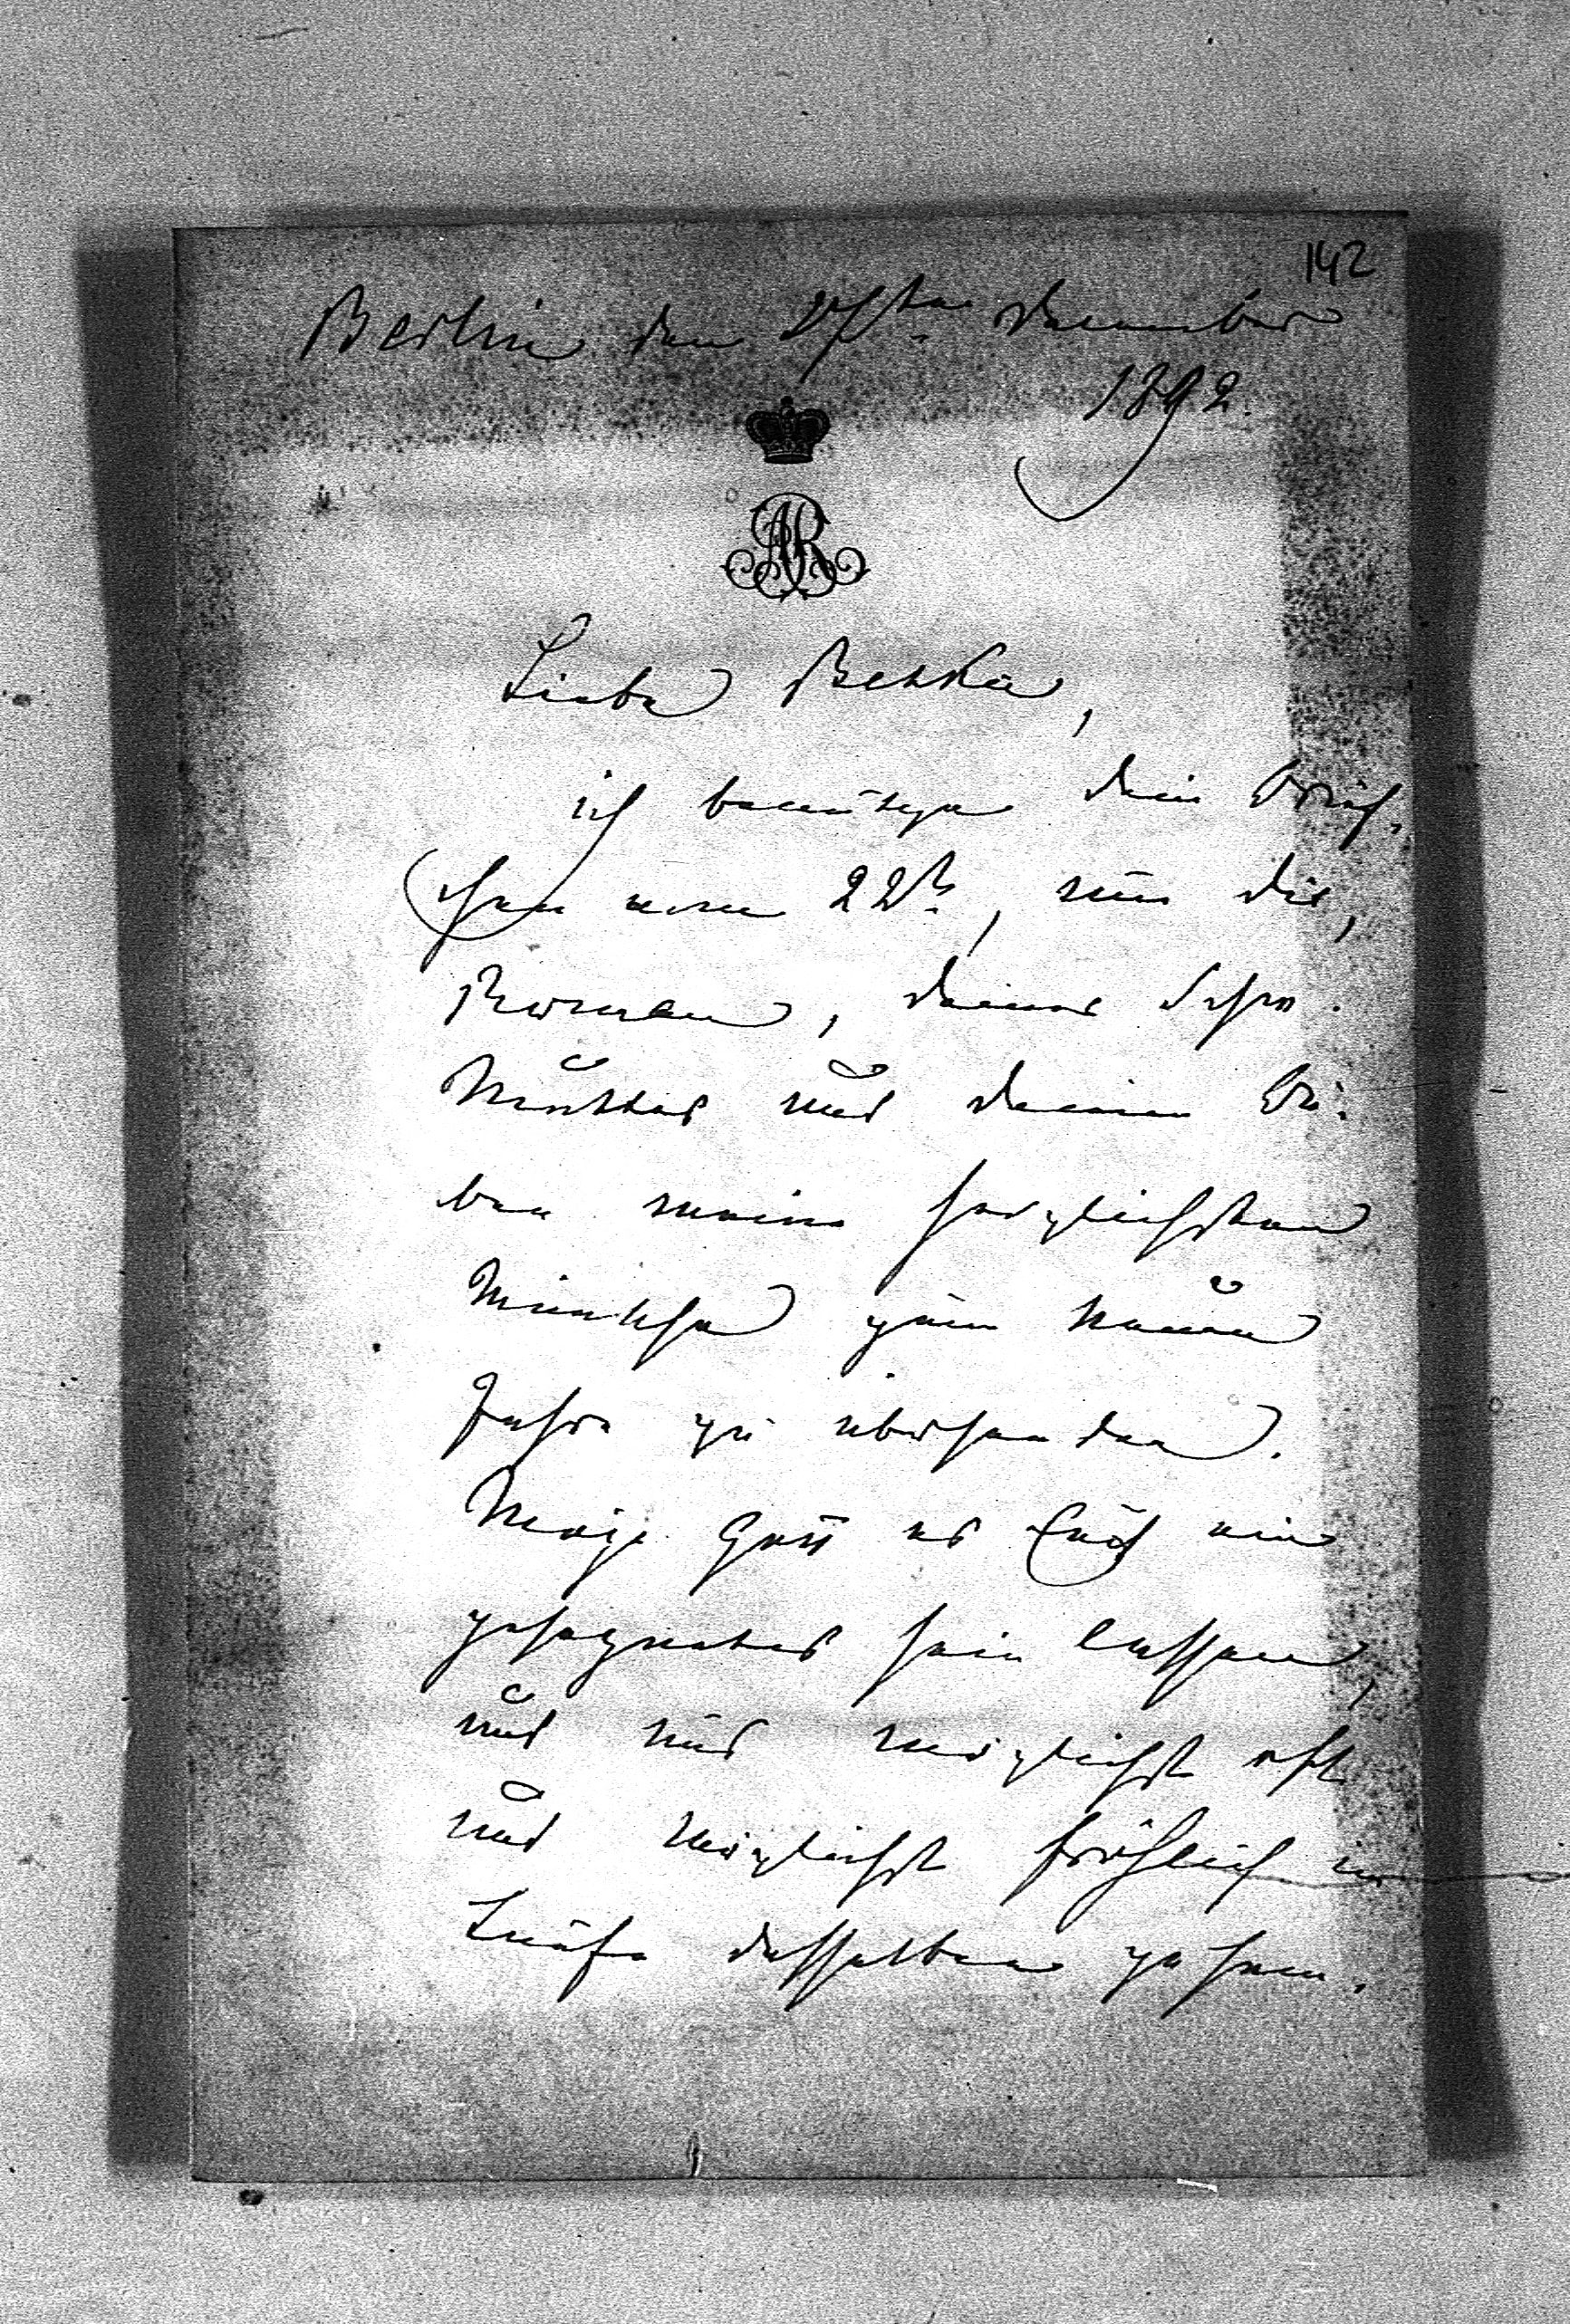 142
Berlin den 27sten December
1892.
AR
Liebe Betka,
ich benutze Dein Brief¬
chen vom 22ten, um Dir,
Roman, Deiner Schw.
Mutter und Deinen Bu¬
ben meine herzlichsten
Wünsche zum Neuen
Jahre zu übersenden.
Möge Gott es Euch ein
gesegnetes sein lassen,
und uns möglichst oft
und möglichst fröhlich im
Laufe desselben zusammen